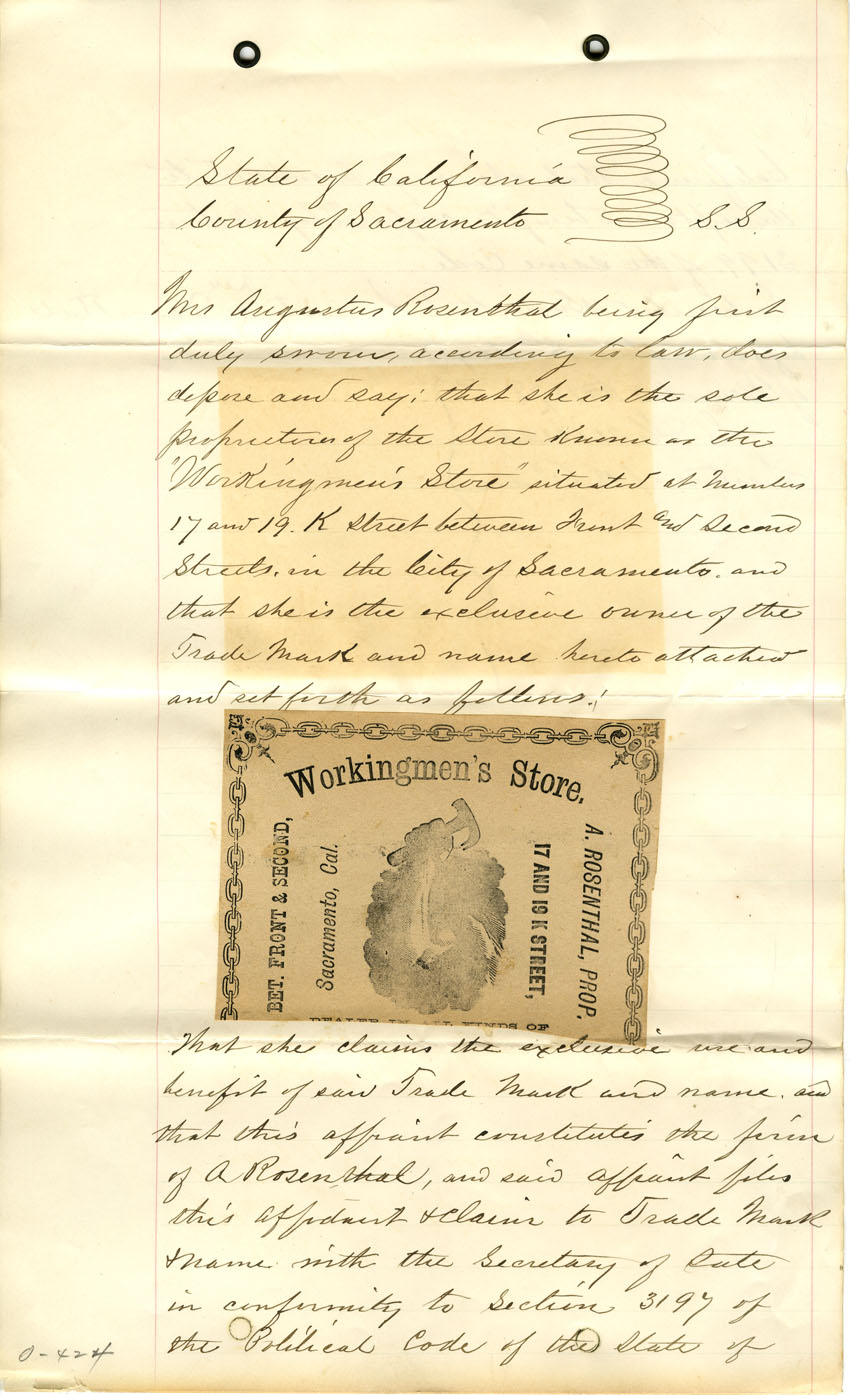 State of California
County of Sacramento S.S.
Mrs Augustus Rosenthal being first
duly sworn, according to law, does
depose and say; that she is the sole
proprietores of the Store Known as the
"Workingmen's Store" situated at Numbers
17 and 19. K Street between Front and Second
Streets, in the City of Sacramento. and
that she is the exclusive owner of the
Trade Mark and name hereto attached
and set forth as follows:
Workingmen's Store.
A. ROSENTHAL, PROP.
17 AND 19 K STREET,
BET. FRONT & SECOND,
Sacramento, Cal.
DEALER IN ALL KINDS OF
That she claims the exclusive use and
benefit of said Trade Mark and name. and
that this affiant constitutes the firm
of A Rosenthal, and said affiant files
this affidavit & claim to Trade Mark
& name with the Secretary of State
in conformity to Section 3197 of
the Political Code of the State of
0-424